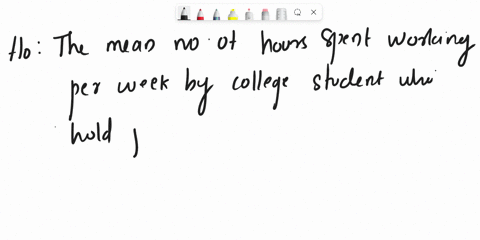 Ho: The mean no. of hours spent working
per week by college student who
hold